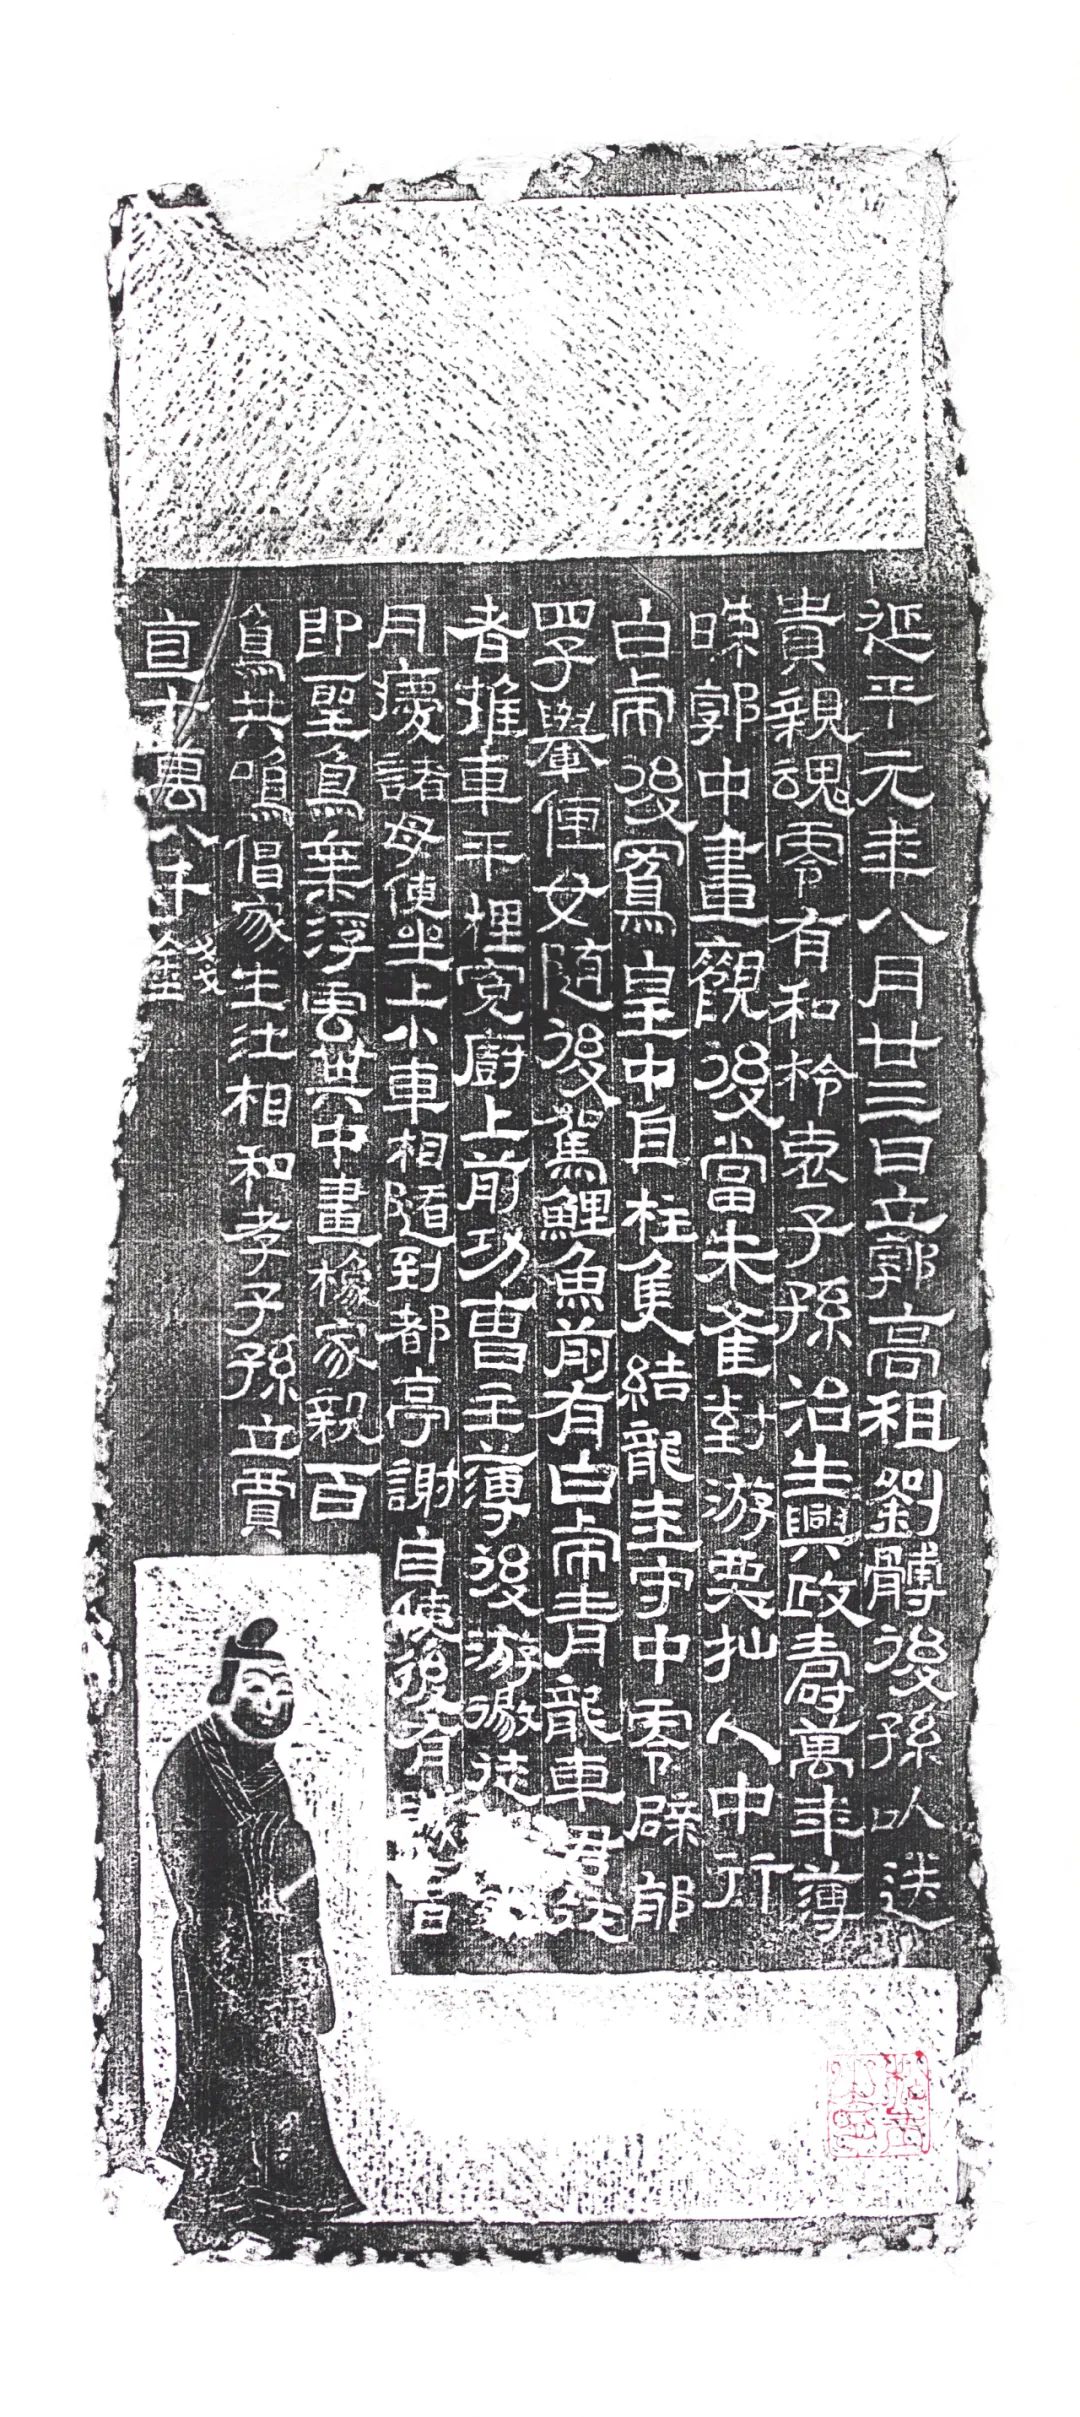 延平元年八月廿三日立郭高祖劉髆後孫人送
貴親魂零有和柃哀子孫治生興政壽萬年薄
踈郭中畫觀後當朱雀對游栗拙人中行
白虎後鳳皇中直柱隻結龍主守中零辟邪
學轝便女隨後駕鯉魚前有白虎青龍車
者推車平梩冤廚上前功曹主薄後游徼
月癭諸母使坐上小車相隨到都亭謝自便後有
即聖鳥乘浮雲其中畫橡家親百
鳥共鳴倡家生汢相和孝子孫立賈
直十萬八千錢